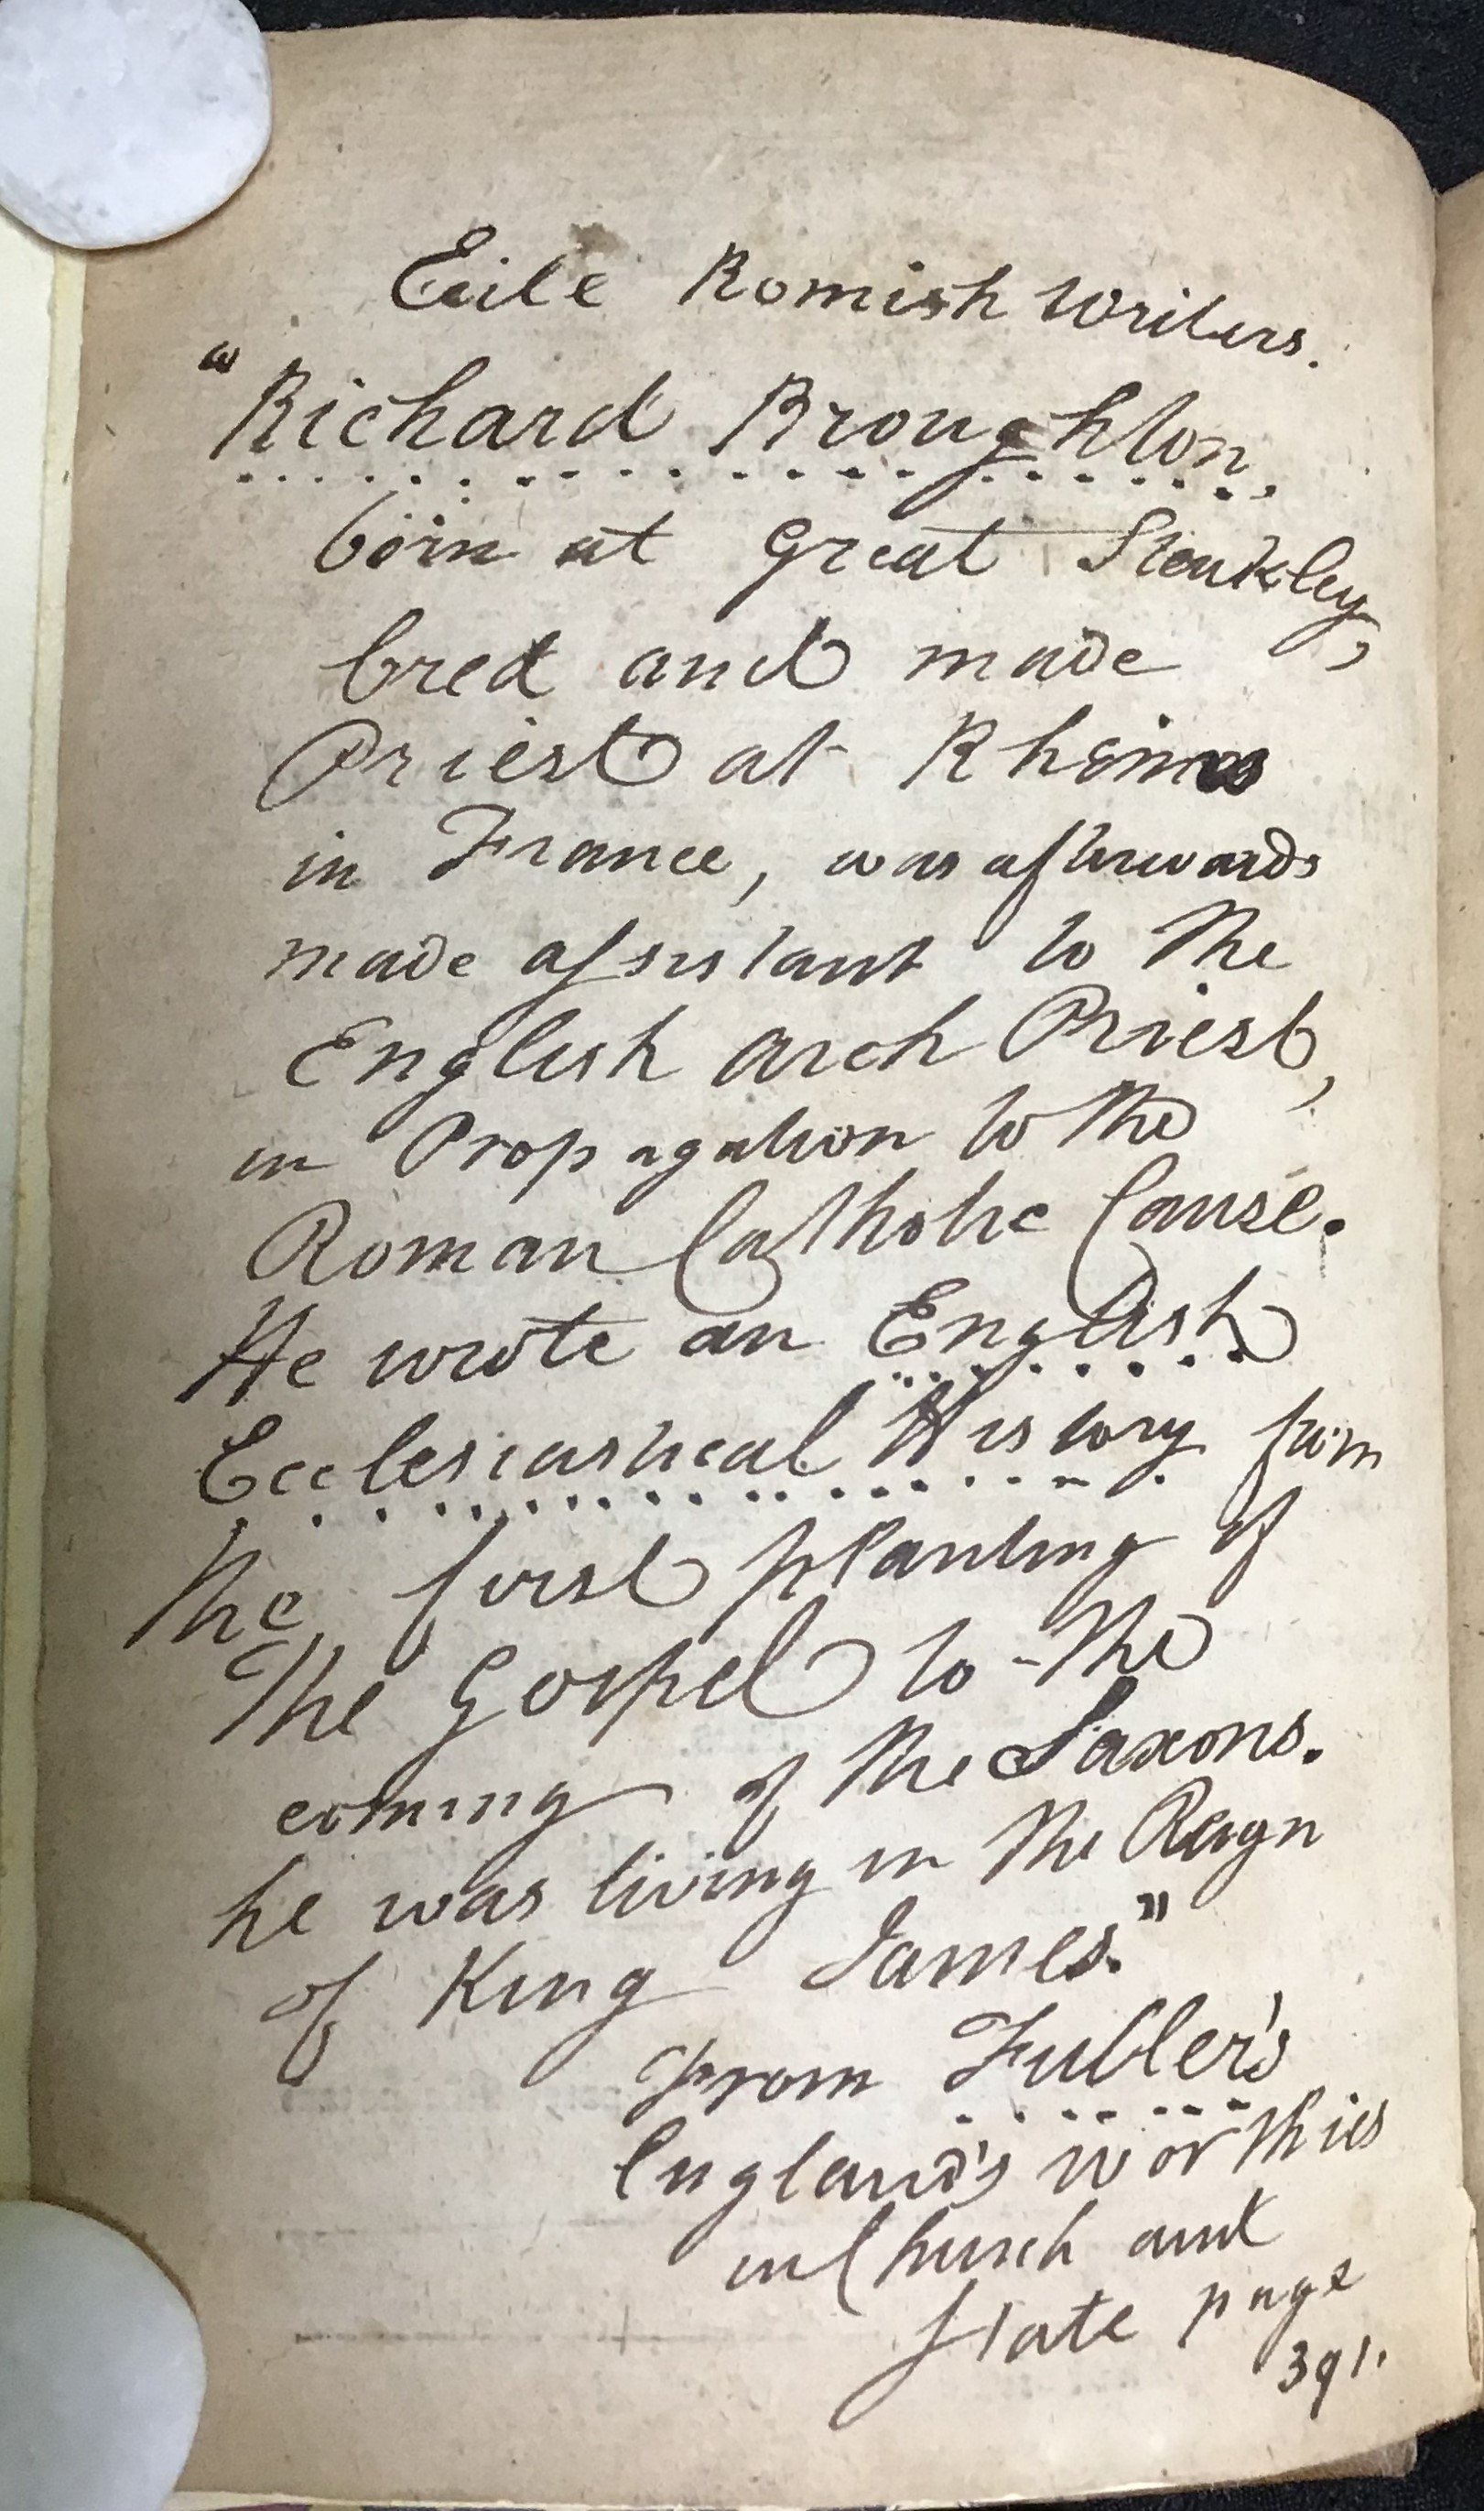 Exile Romish Writers.
"Richard Broughton,
born at Great Steukley,
bred and made
Priest at Rheims
in France, was afterwards
made assistant to the
English Arch Priest,
in Propagation to the
Roman Catholic Cause.
He wrote an English
Ecclesiastical History from
the first planting of
the Gospel to the
coming of the Saxons.
he was living in the Reign
of King James."
From Fuller's
England's Worthies
in Church and
State page
391.